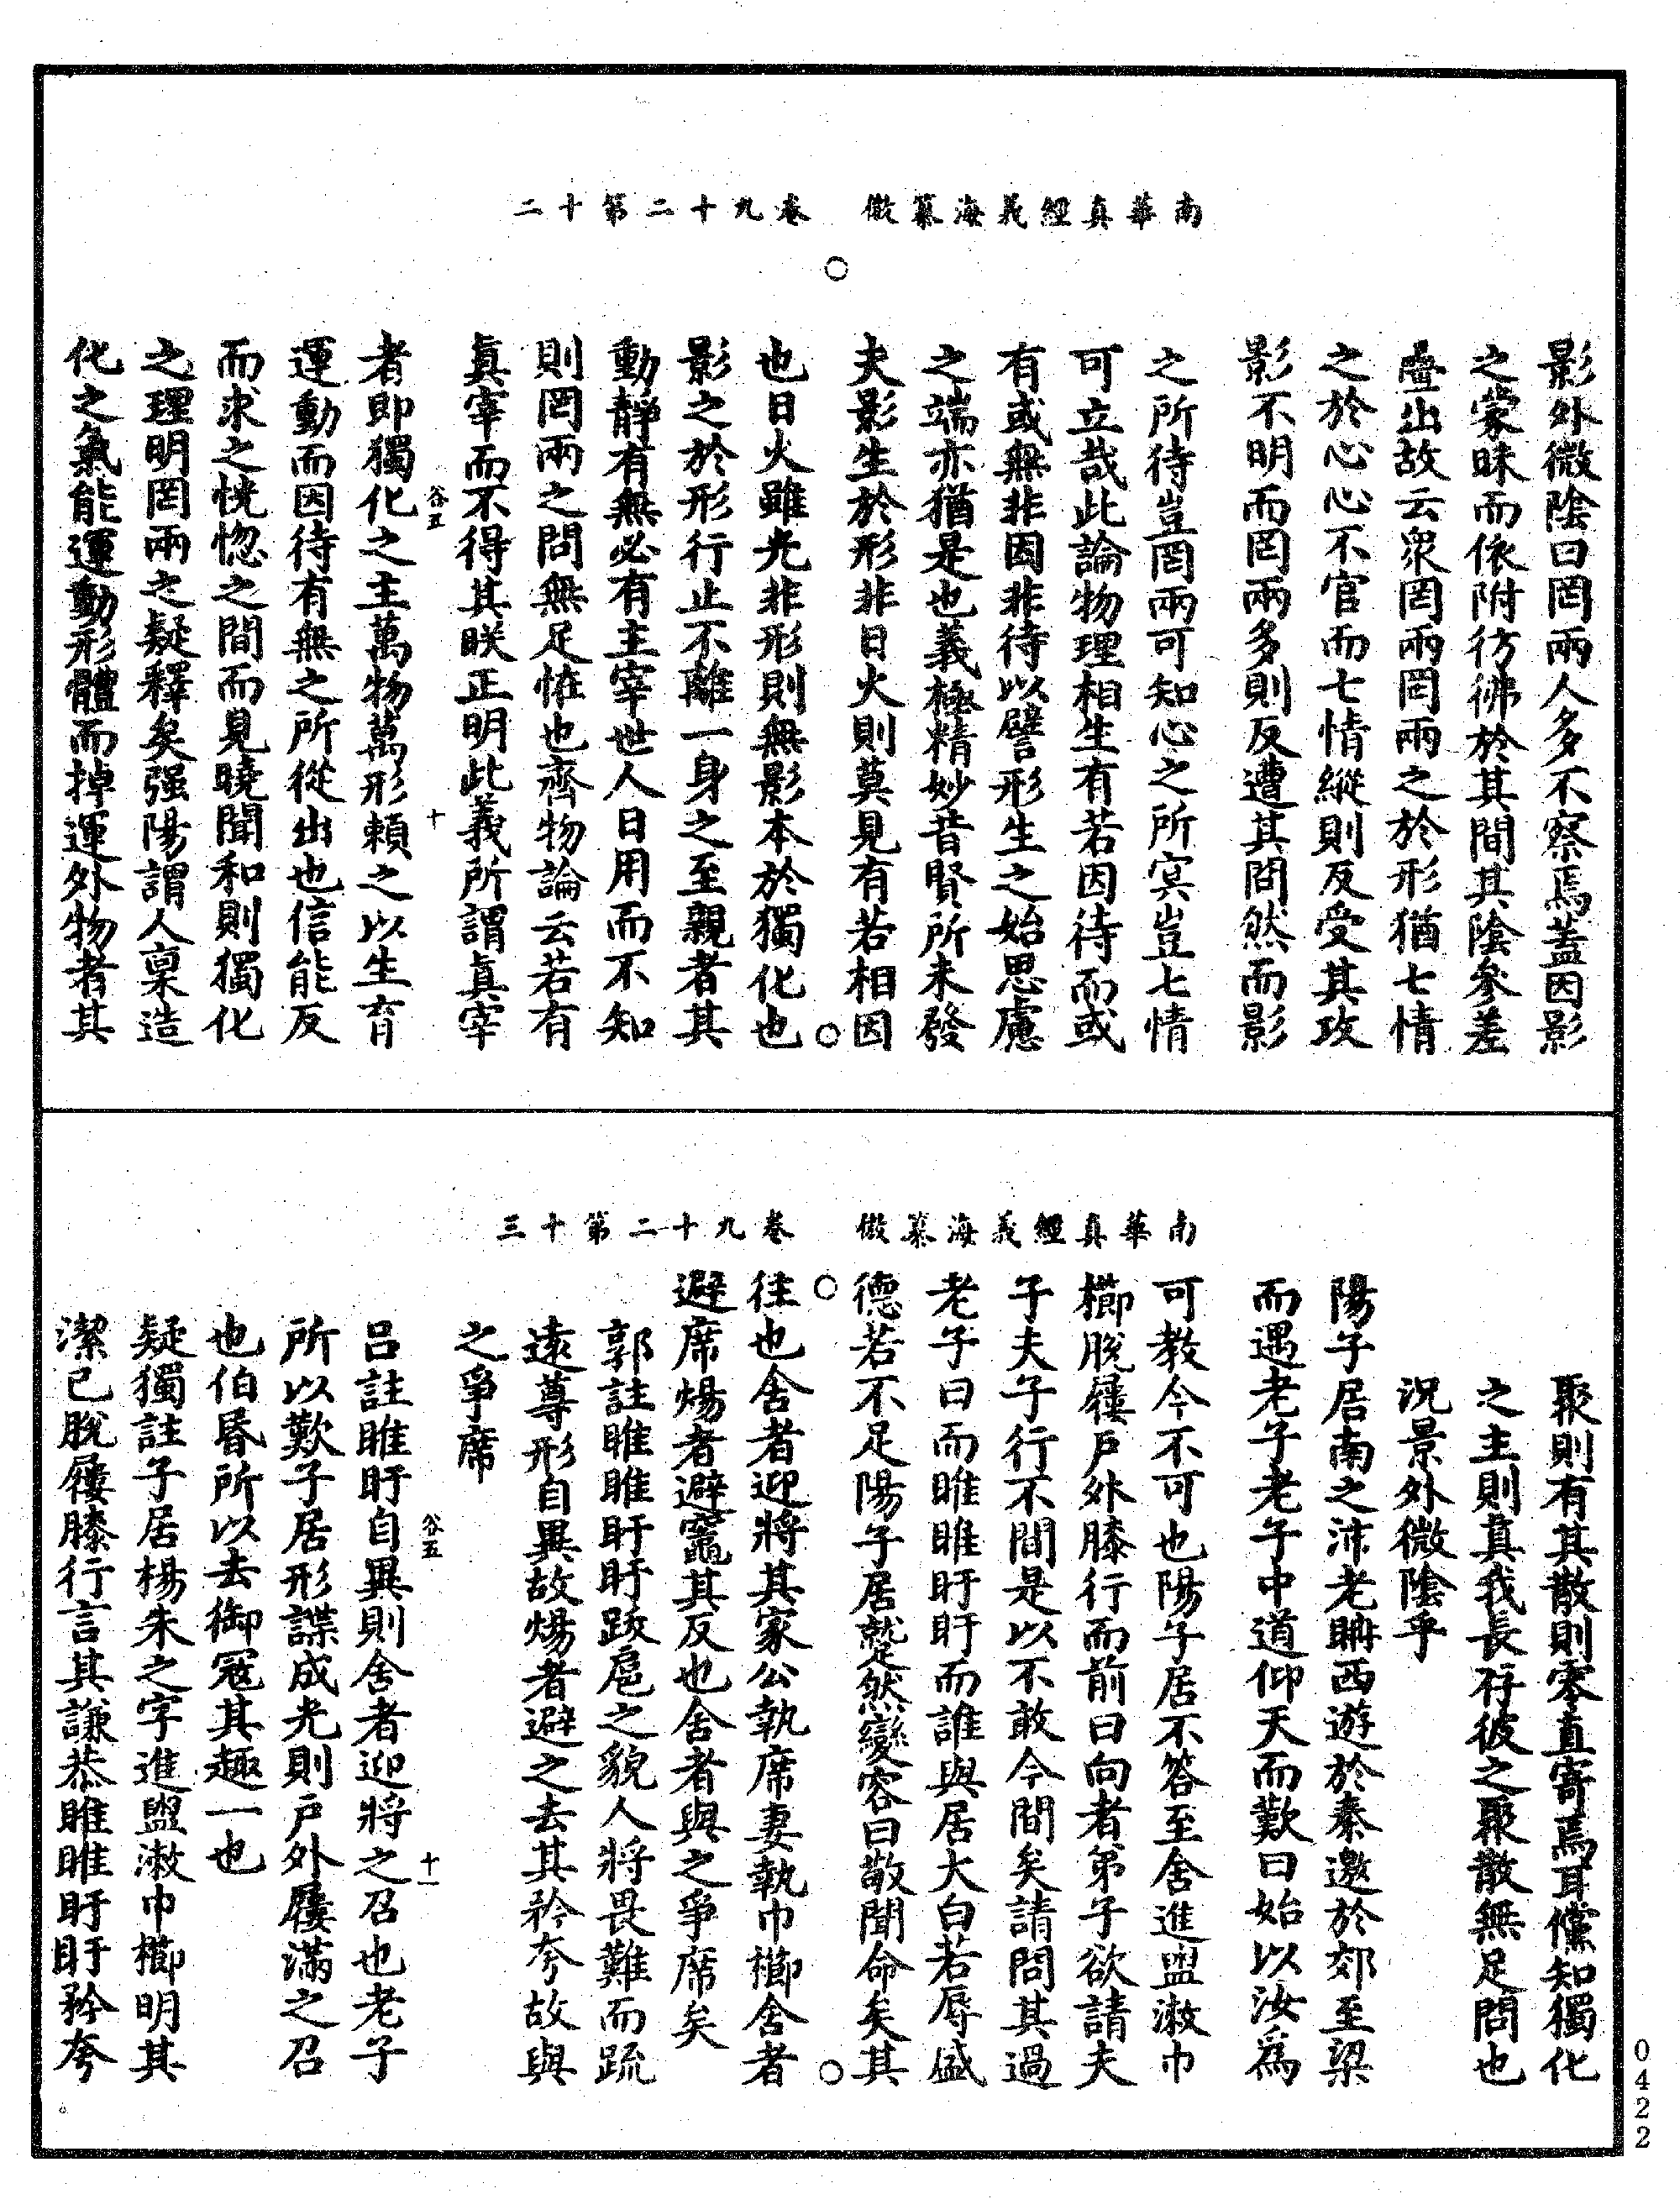 南華真經義海纂微　卷九十二第十二
影外微陰曰罔兩人多不察焉蓋因影
之蒙昧而依附彷彿於其間其陰參差
疊出故云衆罔兩罔兩之於形猶七情
之於心心不官而七情縱則反受其攻
影不明而罔兩多則反遭其問然而影
之所待豈罔兩可知心之所冥豈七情
可立哉此論物理相生有若因待而或
有或無非因非待以譬形生之始思慮
之端亦猶是也義極精妙昔賢所未發
夫影生於形非日火則莫見有若相因
也日火雖光非形則無影本於獨化也
影之於形行止不離一身之至親者其
動靜有無必有主宰世人日用而不知
則罔兩之問無足恠也齊物論云若有
真宰而不得其眹正明此義所謂真宰
谷五　十
者即獨化之主萬物萬形賴之以生育
運動而因待有無之所從出也信能反
而求之恍惚之間而見曉聞和則獨化
之理明罔兩之疑釋矣强陽謂人稟造
化之氣能運動形體而掉運外物者其
南華真經義海纂微　卷九十二第十三
聚則有其散則零直寄焉耳儻知獨化
之主則真我長存彼之聚散無足問也
況景外微陰乎
陽子居南之沛老聃西遊於秦邀於郊至梁
而遇老子老子中道仰天而歎曰始以汝爲
可教今不可也陽子居不答至舍進盥漱巾
櫛脫屨戶外膝行而前曰向者弟子欲請夫
子夫子行不閒是以不敢今閒矣請問其過
老子曰而睢睢盱盱而誰與居大白若辱盛
德若不足陽子居蹵然變容曰敬聞命矣其
往也舍者迎將其家公執席妻執巾櫛舍者
避席煬者避竈其反也舍者與之爭席矣
郭註睢睢盱盱跋扈之貌人將畏難而踈
遠尊形自異故煬者避之去其矜夸故與
之爭席
谷五　十一
呂註睢盱自異則舍者迎將之召也老子
所以歎子居形諜成光則戶外屨滿之召
也伯昬所以去御寇其趣一也
疑獨註子居楊朱之字進盥漱巾櫛明其
潔己脫屨膝行言其謙恭睢睢盱盱矜夸
0422